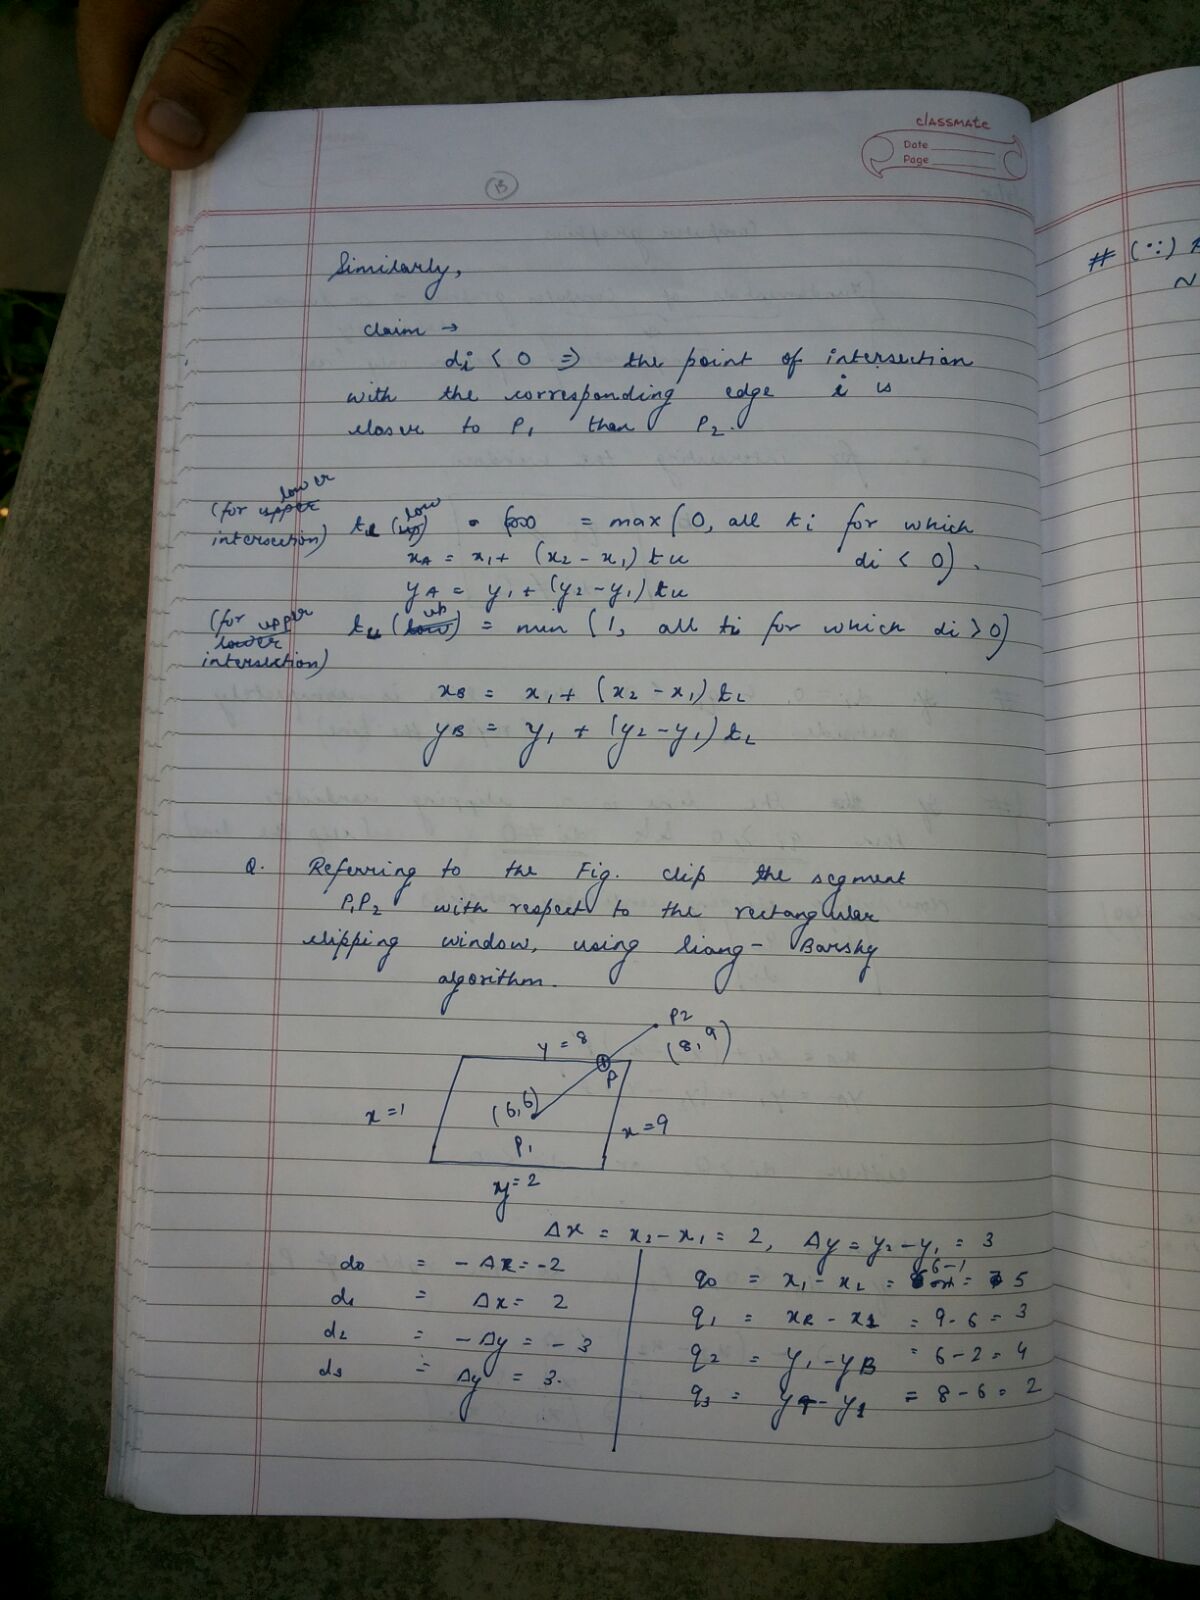 classmate
Date
Page
13
# (∵)
Similarly,
claim →
di < 0 ⇒ the point of intersection
with the corresponding edge i is
closer to P1 than P2.
(for upper lower
intersection)
tL (up low) = = max (0, all ti for which
di < 0).
xA = x1 + (x2 - x1) tu
yA = y1 + (y2 - y1) tu
(for lower upper
intersection)
tu (low up) = min (1, all ti for which di > 0)
xB = x1 + (x2 - x1) tL
yB = y1 + (y2 - y1) tL
Q. Referring to the Fig. clip the segment
P1P2 with respect to the rectangular
clipping window, using liang - Barsky
algorithm.
P2
(8, 9)
y = 8
P
(6,6)
P1
x = 1
x = 9
y = 2
Δx = x2 - x1 = 2, Δy = y2 - y1 = 3
d0 = - Δx = -2
d1 = Δx = 2
d2 = - Δy = - 3
d3 = Δy = 3.
q0 = x1 - xL = 6-1 = 5
q1 = xR - x1 = 9 - 6 = 3
q2 = y1 - yB = 6 - 2 = 4
q3 = yT - y1 = 8 - 6 = 2